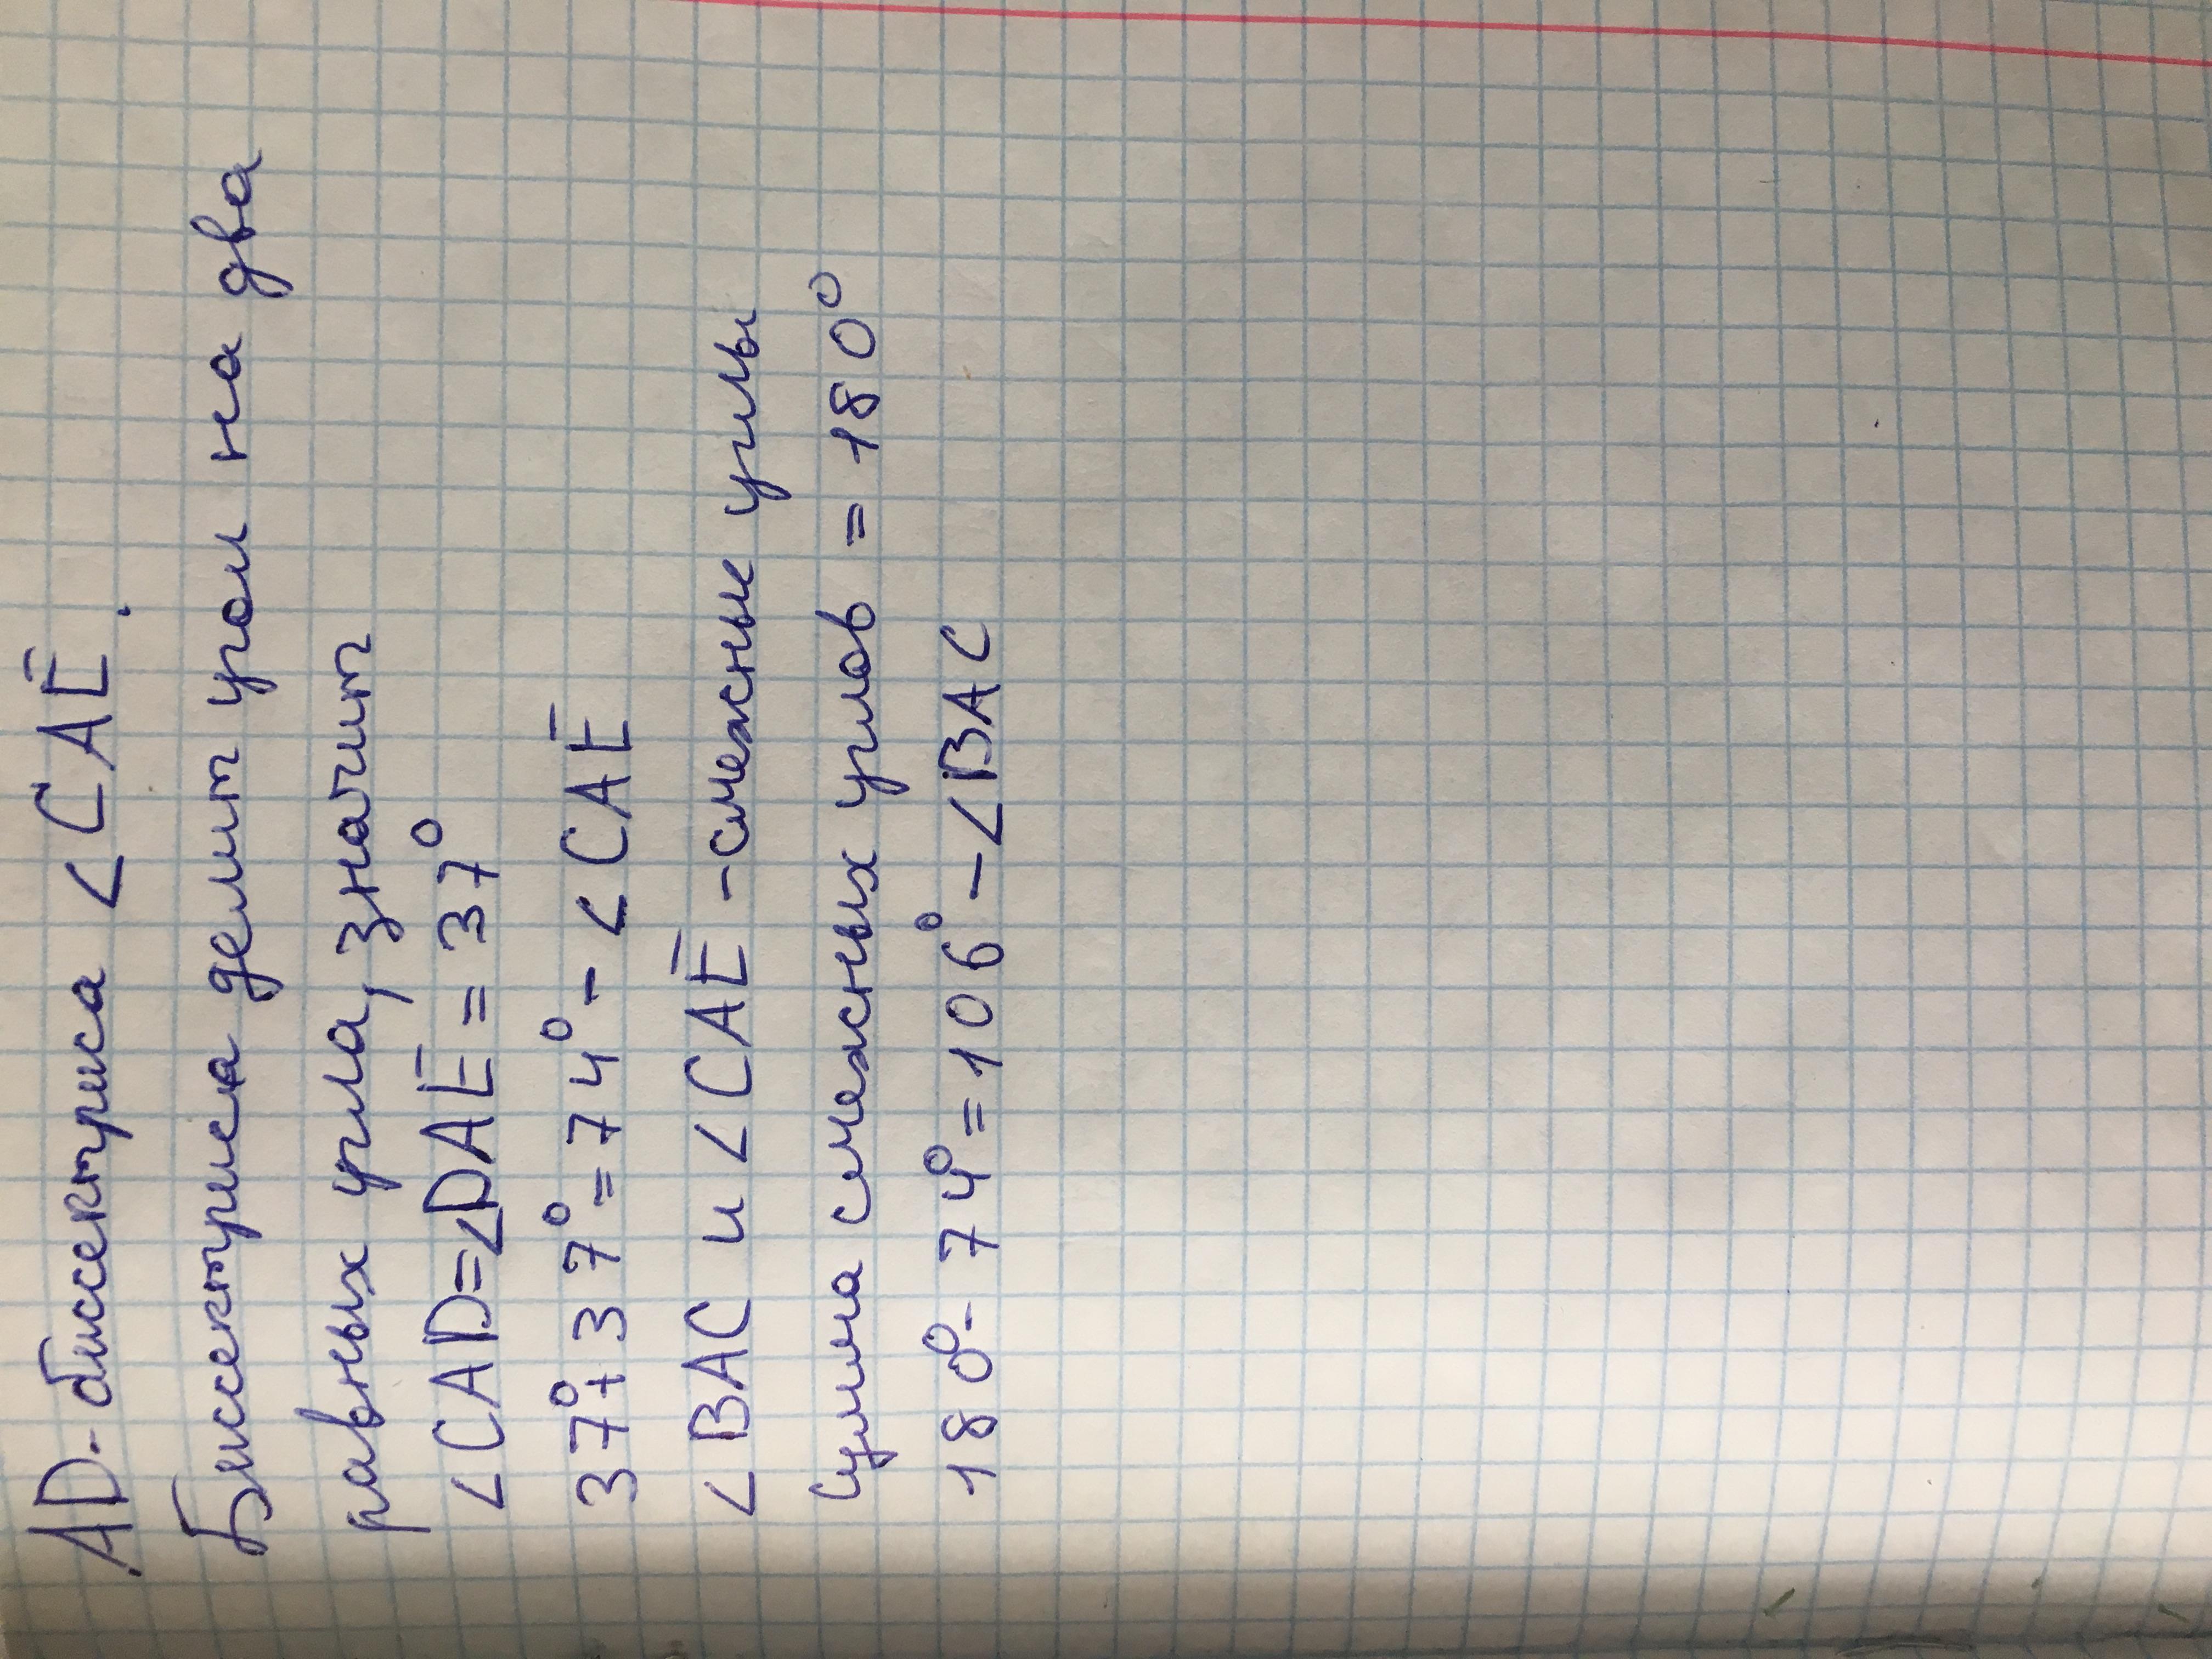 AD - биссектриса ∠CAE.
Биссектриса делит угол на два
равных угла, значит
∠CAD=∠DAE=37°
37°+37°=74° - ∠CAE
∠BAC и ∠CAE - смежные углы
Сумма смежных углов = 180°
180°- 74°=106° - ∠BAC